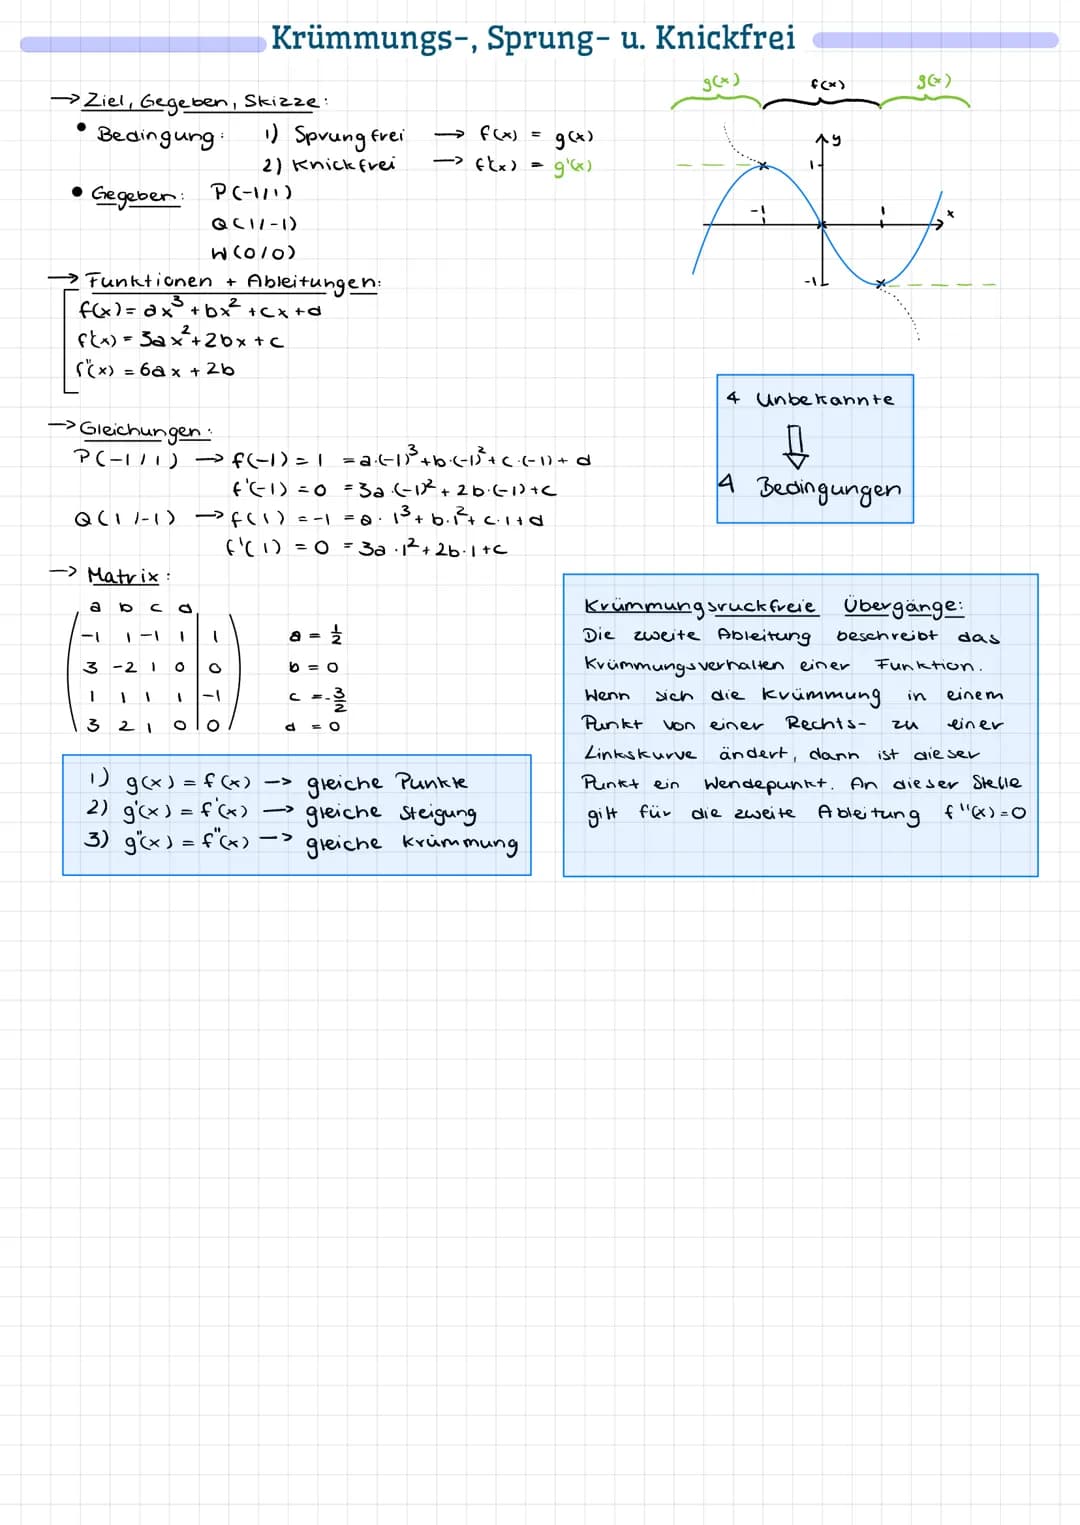 Krümmungs-, Sprung- u. Knickfrei
→ Ziel, Gegeben, Skizze:
• Bedingung: 1) Sprung frei → f(x) = g(x)
2) Knickfrei → f'(x) = g'(x)
• Gegeben: P(-1/1)
Q(1/-1)
W(0/0)
→ Funktionen + Ableitungen:
f(x) = ax³ + bx² + cx + d
f'(x) = 3ax² + 2bx + c
f''(x) = 6ax + 2b
→ Gleichungen:
P(-1/1) → f(-1) = 1 = a·(-1)³ + b·(-1)² + c·(-1) + d
f'(-1) = 0 = 3a·(-1)² + 2b·(-1) + c
Q(1/-1) → f(1) = -1 = a·1³ + b·1² + c·1 + d
f'(1) = 0 = 3a·1² + 2b·1 + c
→ Matrix:
a b c d
-1 1 -1 1 | 1 a = 1/2
3 -2 1 0 | 0 b = 0
1 1 1 1 | -1 c = -3/2
3 2 1 0 | 0 d = 0
1) g(x) = f(x) -> gleiche Punkte
2) g'(x) = f'(x) -> gleiche Steigung
3) g''(x) = f''(x) -> gleiche Krümmung
g(x) f(x) g(x)
y
1
-1 1 x
-1
4 Unbekannte
⇓
4 Bedingungen
Krümmungsruckfreie Übergänge:
Die zweite Ableitung beschreibt das
Krümmungsverhalten einer Funktion.
Wenn sich die Krümmung in einem
Punkt von einer Rechts- zu einer
Linkskurve ändert, dann ist dieser
Punkt ein Wendepunkt. An dieser Stelle
gilt für die zweite Ableitung f''(x) = 0